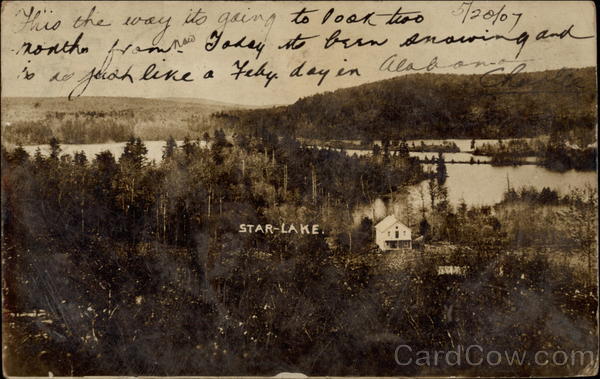 This the way its going to look two 5/20/07
months from now Today its been snowing and
is so just like a Feby. day in Alabama
STAR-LAKE.
CardCow.com